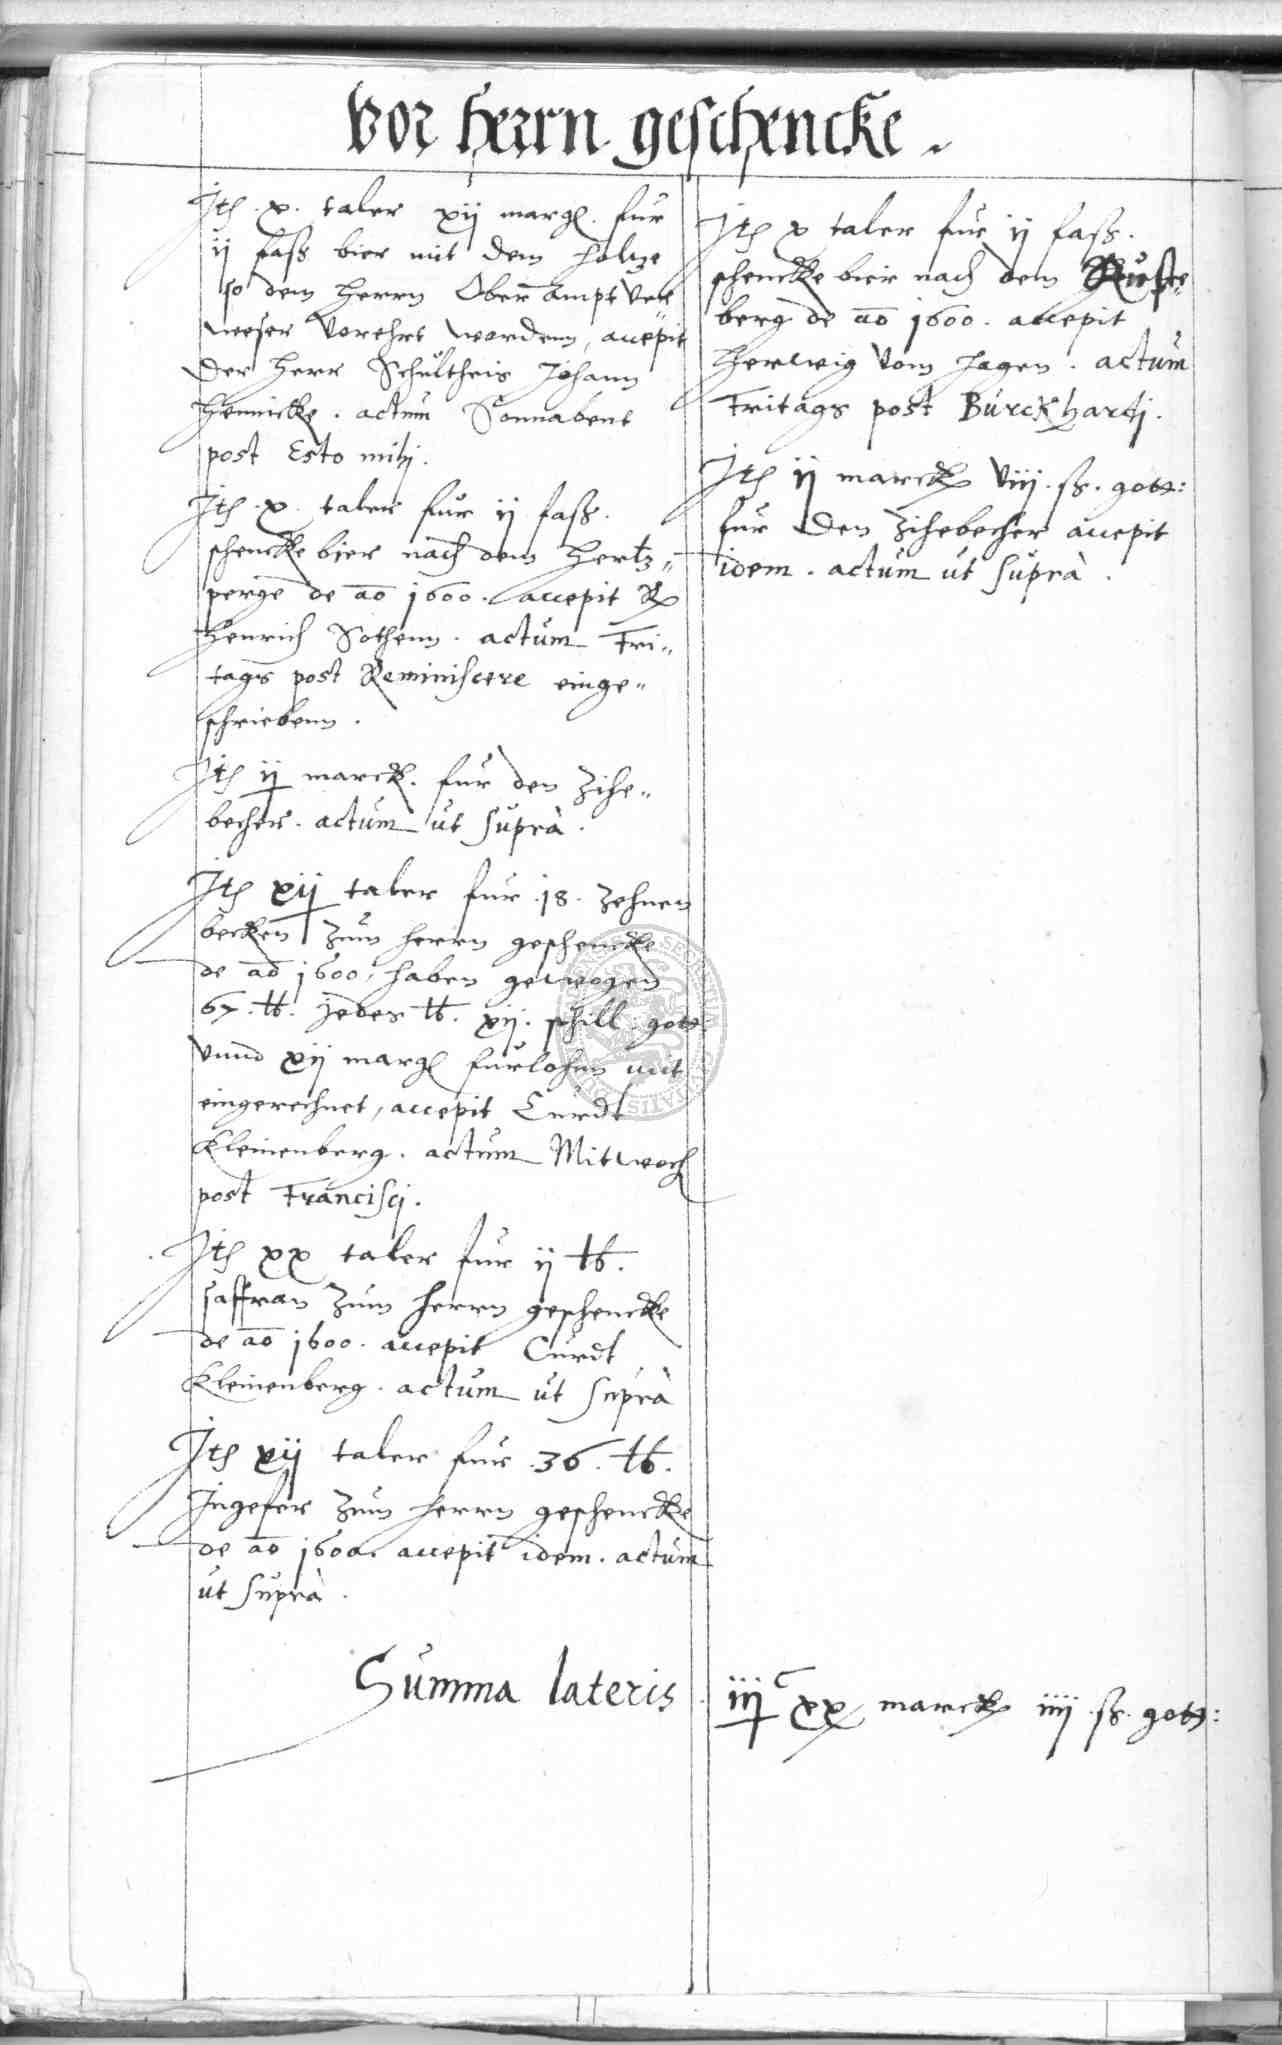 Vor herrn geschencke.
Ite͂ . x . taler xij marg͂ . fur
ij fass bier mit dem holtze
so dem herrn Ober ampt ver„
weser vorehrt wordenn, accepit
der herr Schultheis Johann
Hennicke . actum Sonnabent
post Esto mihj.
Ite͂ . x . taler fur ij fass.
schencke bier nach dem Hertz„
perge de ao 1600. accepit R
Henrich Sothenn . actum Fri„
tags post Reminiscere einge„
schriebenn .
Ite͂ ij marck. fur den Zihe„
becher. actum ut supra .
Ite͂ xij taler fur .18. Zehnen
becken Zum herrn geschencke
de ao 1600, haben gewogen
67. lb. jedes lb. xij. schill. gott:
vnnd xij marg͂ furlohnn mit
eingerechnet, accepit Curdt
Kleinenberg. actum Mitwoch
post Francisci.
Ite͂ xx taler fur ij lb.
saffran Zum herrn geschencke
de ao 1600. accepit Curdt
Kleinenberg. actum ut supra
Ite͂ xij taler fur .36. lb.
Ingefer Zum herrn geschencke
de ao 1600. accepit idem. actum
ut supra .
Ite͂ x taler fur ij fass.
schencke bier nach dem Ruste„
berg de ao 1600. accepit
Herwig vom Hagen . actum
Fritags post Burckhardj.
Ite͂ ij marck viij . ss. gott:
fur den Zihebecher accepit
idem . actum ut supra .
Summa lateris iij C xx marck iiij . ss. gott: